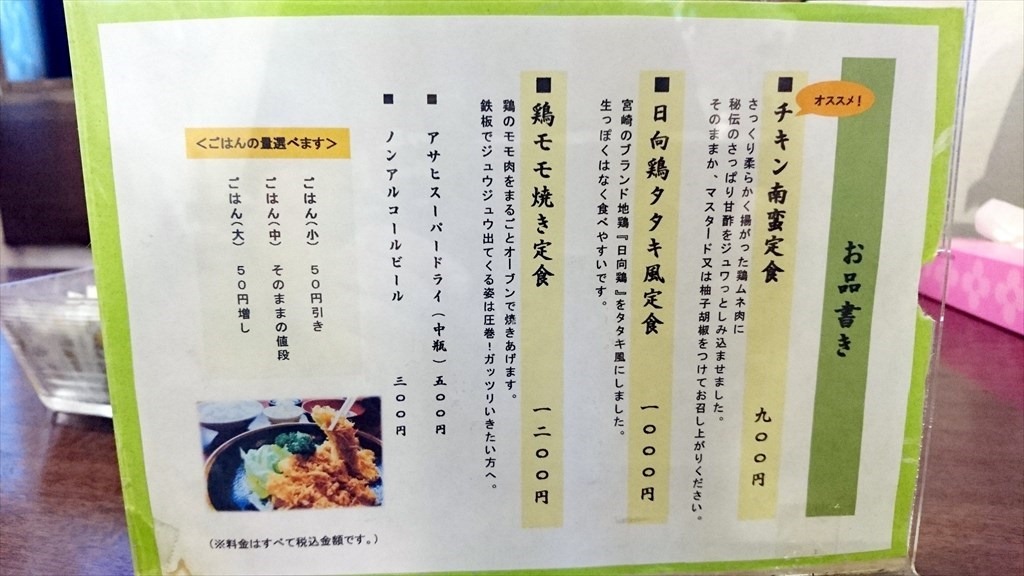 お品書き
オススメ!
■チキン南蛮定食 九〇〇円
さっくり柔らかく揚がった鶏ムネ肉に
秘伝のさっぱり甘酢をジュワっとしみ込ませました。
そのままか、マスタード又は柚子胡椒をつけてお召し上がりください。
■日向鶏タタキ風定食 一〇〇〇円
宮崎のブランド地鶏『日向鶏』をタタキ風にしました。
生っぽくはなく食べやすいです。
■鶏モモ焼き定食 一二〇〇円
鶏のモモ肉をまるごとオーブンで焼きあげます。
鉄板でジュウジュウ出てくる姿は圧巻!ガッツリいきたい方へ。
■ アサヒスーパードライ(中瓶)五〇〇円
■ ノンアルコールビール 三〇〇円
<ごはんの量選べます>
ごはん(小) 50円引き
ごはん(中) そのままの値段
ごはん(大) 50円増し
(※料金はすべて税込金額です。)